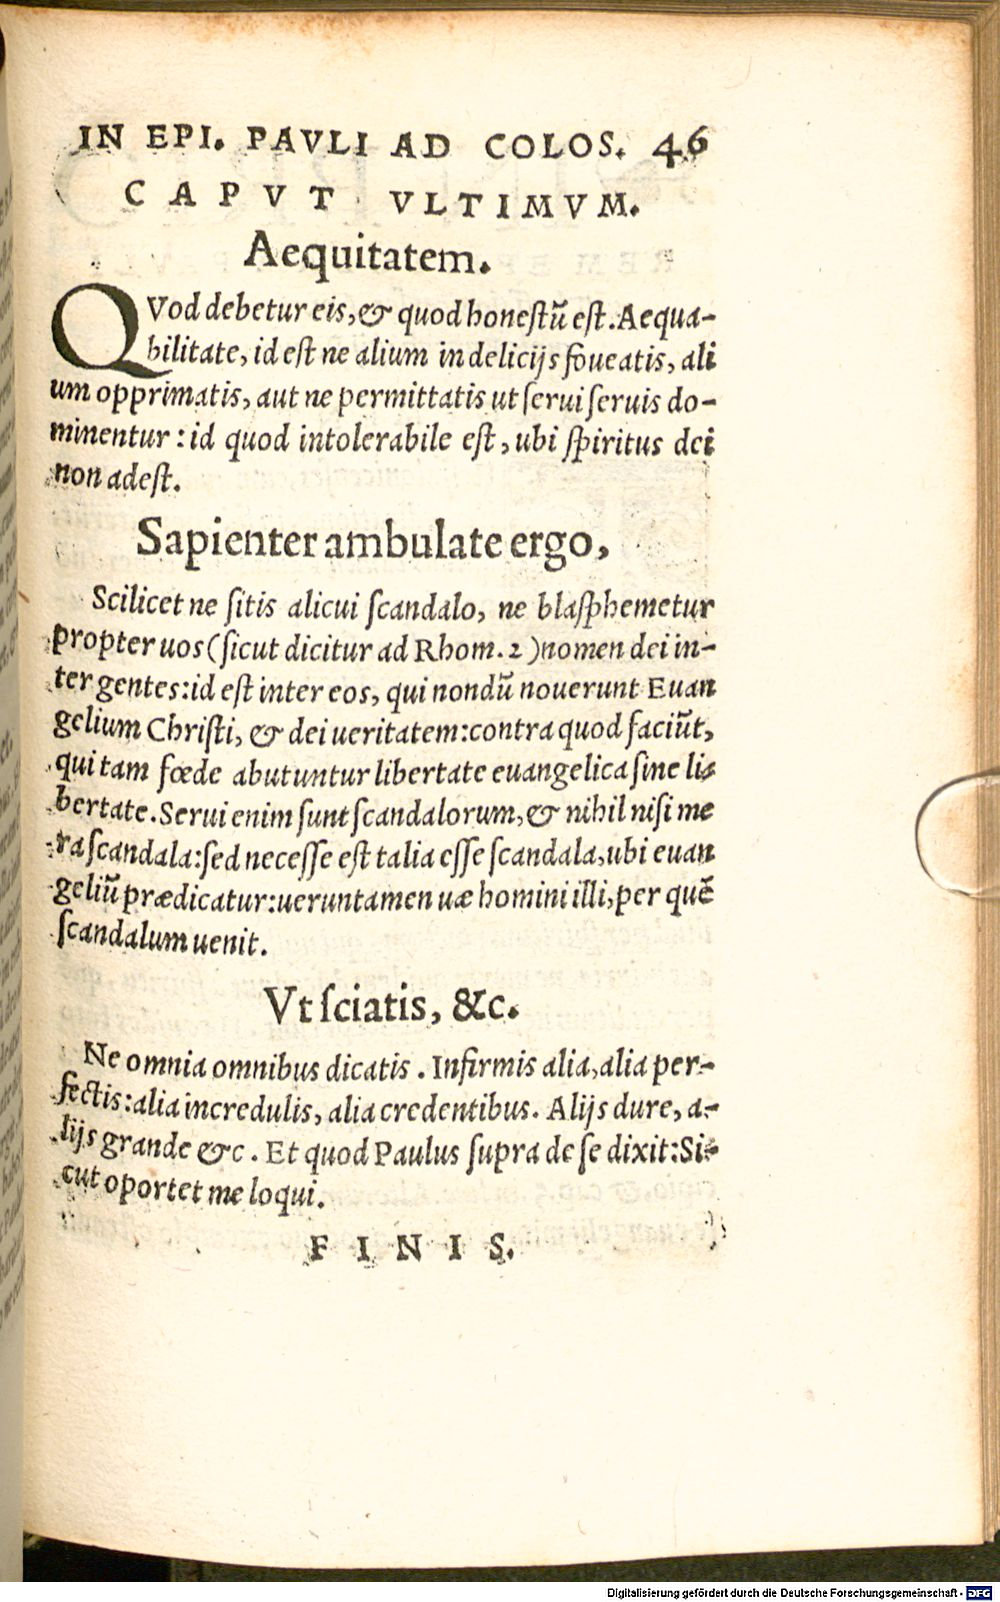 IN EPI. PAVLI AD COLOS. 46
CAPVT VLTIMVM.
Aequitatem.
QVod debetur eis, & quod honestũ est. Aequa-
bilitate, id est ne alium in delicijs foueatis, ali
um opprimatis, aut ne permittatis ut serui seruis do-
minentur: id quod intolerabile est, ubi spiritus dei
non adest.
Sapienter ambulate ergo,
Scilicet ne sitis alicui scandalo, ne blasphemetur
propter uos (sicut dicitur ad Rhom. 2) nomen dei in-
ter gentes: id est inter eos, qui nondũ nouerunt Euan
gelium Christi, & dei ueritatem: contra quod faciũt,
qui tam fœde abutuntur libertate euangelica sine li-
bertate. Serui enim sunt scandalorum, & nihil nisi me
ra scandala: sed necesse est talia esse scandala, ubi euan
geliũ prædicatur: ueruntamen uæ homini illi, per quẽ
scandalum uenit.
Vt sciatis, &c.
Ne omnia omnibus dicatis. Infirmis alia, alia per-
fectis: alia incredulis, alia credentibus. Alijs dure, a-
lijs grande &c. Et quod Paulus supra de se dixit: Si-
cut oportet me loqui.
FINIS.
Digitalisierung gefördert durch die Deutsche Forschungsgemeinschaft - DFG